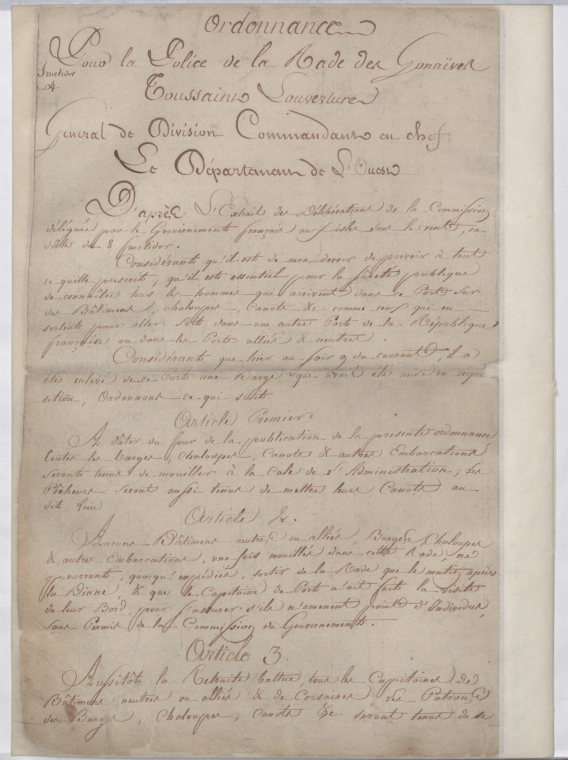 Ordonnance
Pour la Police de la Rade des Gonaïves
Toussaint Louverture
Général de Division Commandant en chef
Le Département de L'Ouest
D'après L'Extrait des Délibérations de la Commission
déléguée par le Gouvernement français aux isles sous le vent, en
datte du 8 fructidor.
Considérant qu'il est de mon devoir de pourvoir à tout
ce qu'elle prescrit, qu'il est essentiel pour la sureté publique
de connaître tous les hommes qui arrivent dans ce Port sur
des Bâtiments, chaloupes, Canots &c comme ceux qui en
sortent pour aller soit dans un autre Port de la République
française ou dans les Ports alliés & neutres.
Considérant que hier au soir 9 du courant, il a
été enlevé de ce Port une Barge que avait été mise en requi
sition, Ordonnons ce qui suit
Article Premier
A dater du jour de la publication de la presente ordonnance
toutes les Barges, chaloupes, Canots & autres Embarcations
seront tenus de mouiller à la Cale de l'Administration, les
Pêcheurs seront aussi tenus de mettre leurs Canots au
dit lieu
Article 2.
Aucuns Bâtiments neutres ou alliés, Barges, Chaloupes
& autres Embarcations, une fois mouillés dans cette Rade, ne
pourront, quoiqu'expédiés, sortir de la Rade que le matin après
la Dianne, & que le Capitaine de Port n'ait fait la visite
de leur Bord pour s'assurer s'ils n'amenent point d'Individus,
sans Permis de la Commission du Gouvernement.
Article 3.
Aussitôt la Retraite battue, tous les Capitaines des
Bâtiments neutres ou alliés & de Corsaires, les Patrons
des Barges, Chaloupes, Canots &c seront tenus de se